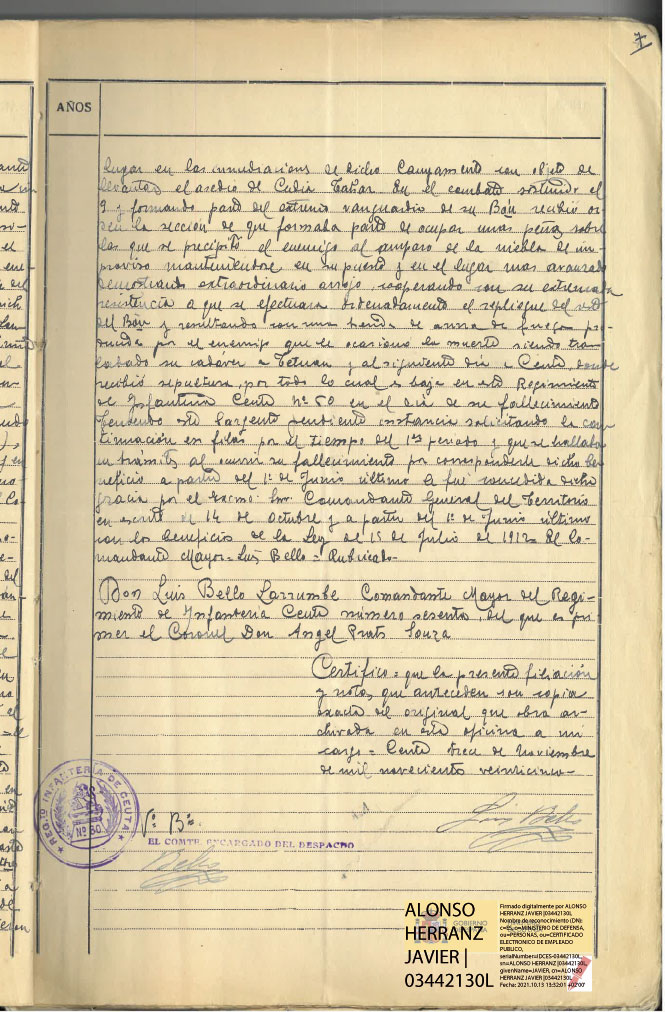 7
AÑOS
lugar en las inmediacions de dicho Campamento con objeto de
levantar el asedio de Cudia Tahar. En el combate sostenido el
9 y formando parte del extremo vanguardia de su Bón recibió or
den la sección de que formaba parte de ocupar unas peñas sobre
las que se precipitó el enemigo al amparo de la niebla de im-
proviso manteniendose en su puesto y en el lugar mas avanzado
demostrando extraordinario arrojo, cooperando con su extremada
resistencia a que se efectuara ordenadamente el repliegue del resto
del Bón y resultando con una herida de arma de fuego pro-
ducida por el enemigo que le ocasionó la muerte siendo tras
ladado su cadáver a Tetuan y al siguiente dia a Ceuta, donde
recibió sepultura, por todo lo cual es baja en este Regimiento
de Infanteria Ceuta nº 60 en el dia de su fallecimiento
teniendo este Sargento pendiente instancia solicitando la con
tinuación en filas por el tiempo del 1er periodo y que se hallaba
en trámite al ocurrir su fallecimiento por corresponderle dicho be
neficio a partir del 1º de Junio último le fué concedida dicha
gracia por el Excmo. Sor. Comandante General del Territorio
en escrito de 14 de Octubre y a partir del 1º de Junio último
con los beneficios de la Ley de 15 de Julio de 1912= El Co-
mandante Mayor= Luis Bello= Rubricado-
Don Luis Bello Larrumbe Comandante Mayor del Regi-
miento de Infanteria Ceuta número sesenta, del que es pri
mer el Coronel Don Angel Prats Souza
Certifico= que la presente filiación
y notas que anteceden son copia
exacta del original que obra ar-
chivada en esta oficina a mi
cargo= Ceuta diez de Noviembre
de mil novecientos veinticinco-
REGTO INFANTERIA DE CEUTA
Nº 60
Vº Bº
Luis Bello
EL COMTE. ENCARGADO DEL DESPACHO
Bello
ALONSO
HERRANZ
JAVIER |
03442130L
GOBIERNO
Firmado digitalmente por ALONSO
HERRANZ JAVIER |03442130L
Nombre de reconocimiento (DN):
c=ES, o=MINISTERIO DE DEFENSA,
ou=PERSONAS, ou=CERTIFICADO
ELECTRONICO DE EMPLEADO
PUBLICO,
serialNumber=IDCES-03442130L,
sn=ALONSO HERRANZ |03442130L,
givenName=JAVIER, cn=ALONSO
HERRANZ JAVIER |03442130L
Fecha: 2021.10.13 13:52:01 +02'00'